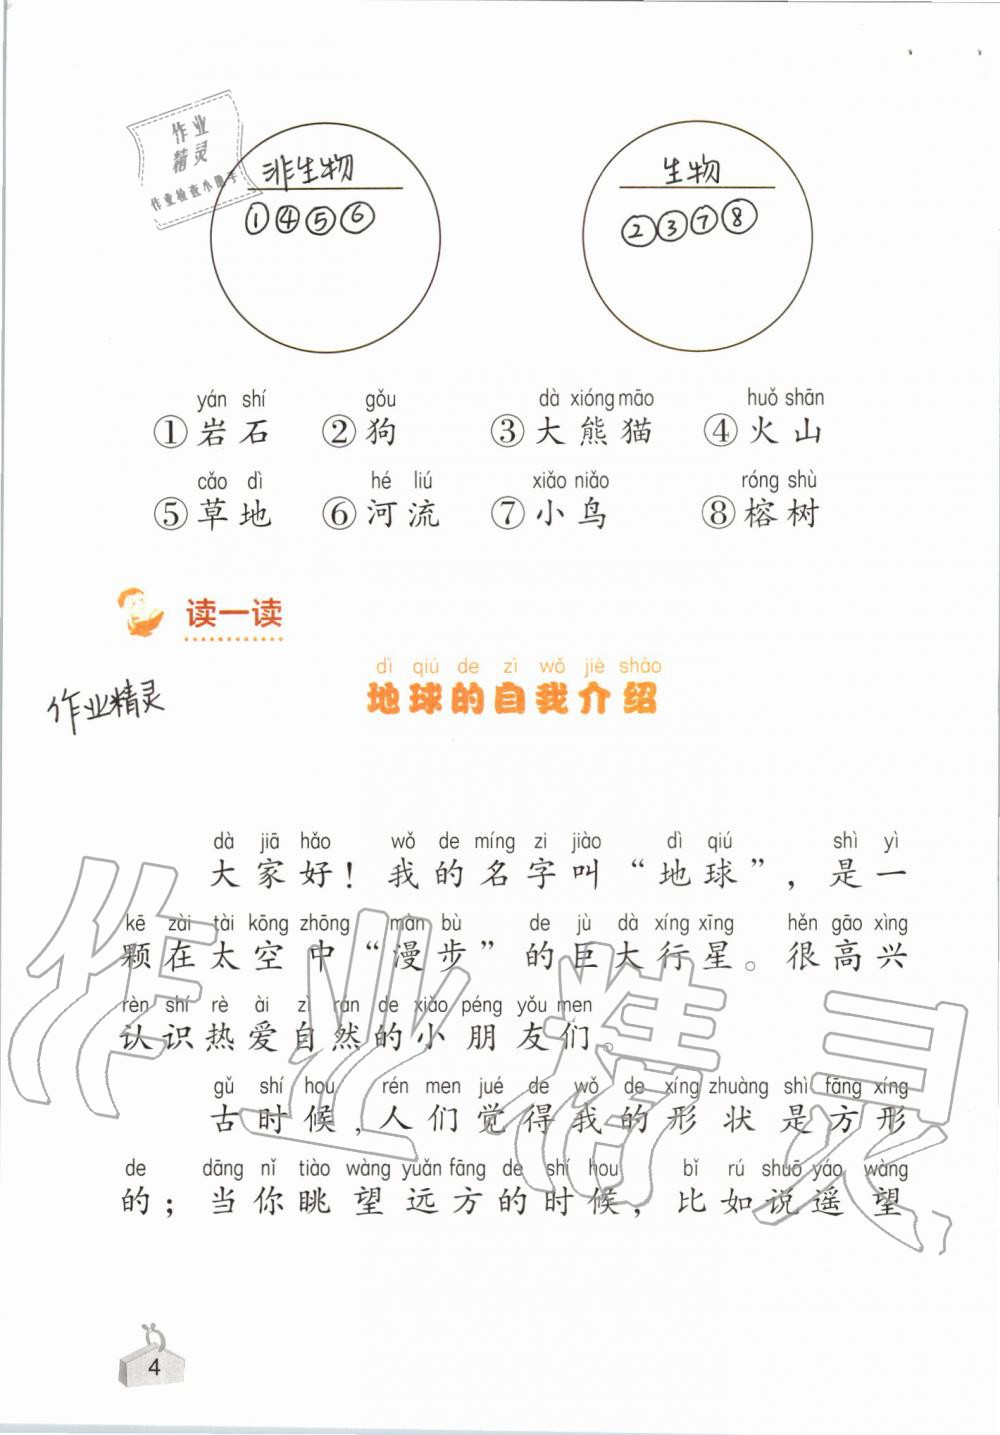 作业
精灵
作业检查小助手
非生物 生物
①④⑤⑥ ②③⑦⑧
yán shí gǒu dà xióng māo huǒ shān
①岩石 ②狗 ③大熊猫 ④火山
cǎo dì hé liú xiǎo niǎo róng shù
⑤草地 ⑥河流 ⑦小鸟 ⑧榕树
读一读
dì qiú de zì wǒ jiè shào
地球的自我介绍
作业精灵
dà jiā hǎo wǒ de míng zi jiào dì qiú shì yì
大家好！我的名字叫“地球”，是一
kē zài tài kōng zhōng màn bù de jù dà xíng xīng hěn gāo xìng
颗在太空中“漫步”的巨大行星。很高兴
rèn shí rè ài zì rán de xiǎo péng yǒu men
认识热爱自然的小朋友们。
gǔ shí hou rén men jué de wǒ de xíng zhuàng shì fāng xíng
古时候，人们觉得我的形状是方形
de dāng nǐ tiào wàng yuǎn fāng de shí hou bǐ rú shuō yáo wàng
的；当你眺望远方的时候，比如说遥望
作业精灵
4